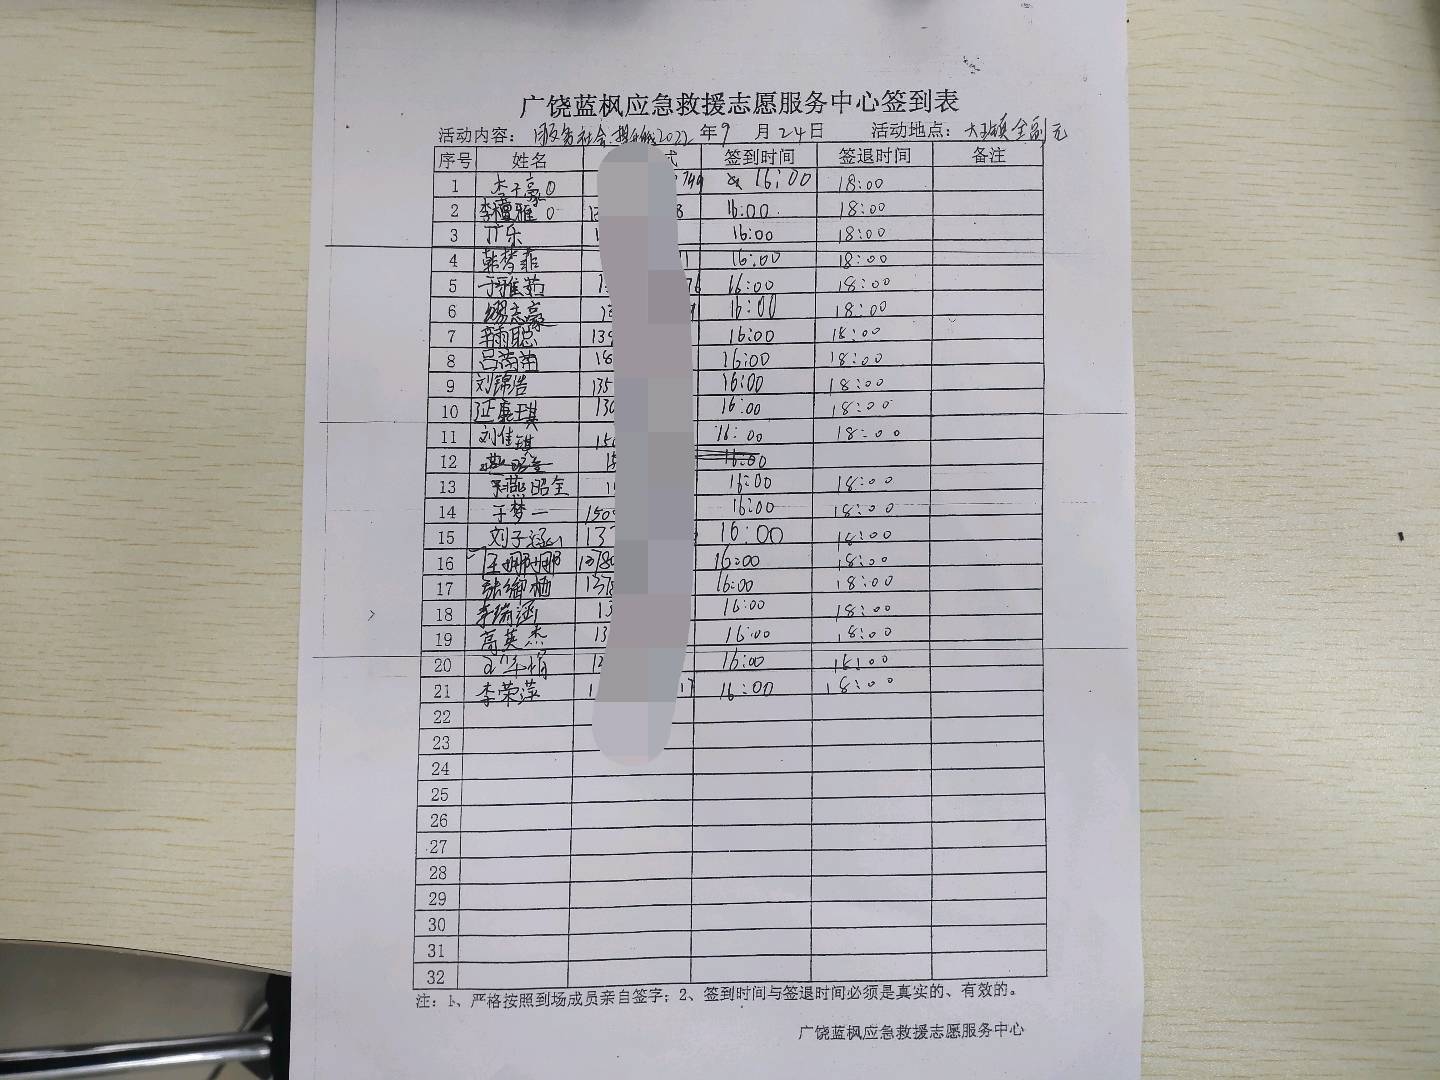 广饶蓝枫应急救援志愿服务中心签到表
活动内容： 服务社会 2022年9月24日 活动地点：大王镇
序号 姓名 式 签到时间 签退时间 备注
1 李子豪 749 16:00 18:00
2 李檀雅 8 16:00 18:00
3 乐 16:00 18:00
4 韩梦菲 1 16:00 18:00
5 于雅茹 1 76 16:00 18:00
6 志豪 16:00 18:00
7 雨聪 139 16:00 18:00
8 吕萌萌 18 16:00 18:00
9 刘锦浩 135 16:00 18:00
10 康琪 130 16:00 18:00
11 刘佳琪 150 16:00 18:00
12 16:00
13 燕昭全 1 16:00 18:00
14 于梦一 150 16:00 18:00
15 刘子涵 137 16:00 18:00
16 王娜娜 13780 16:00 18:00
17 张 1378 16:00 18:00
18 李瑞涵 13 16:00 18:00
19 高英杰 13 16:00 18:00
20 16:00 18:00
21 李荣萍 1 17 16:00 18:00
22
23
24
25
26
27
28
29
30
31
32
注：1、严格按照到场成员亲自签字；2、签到时间与签退时间必须是真实的、有效的。
广饶蓝枫应急救援志愿服务中心